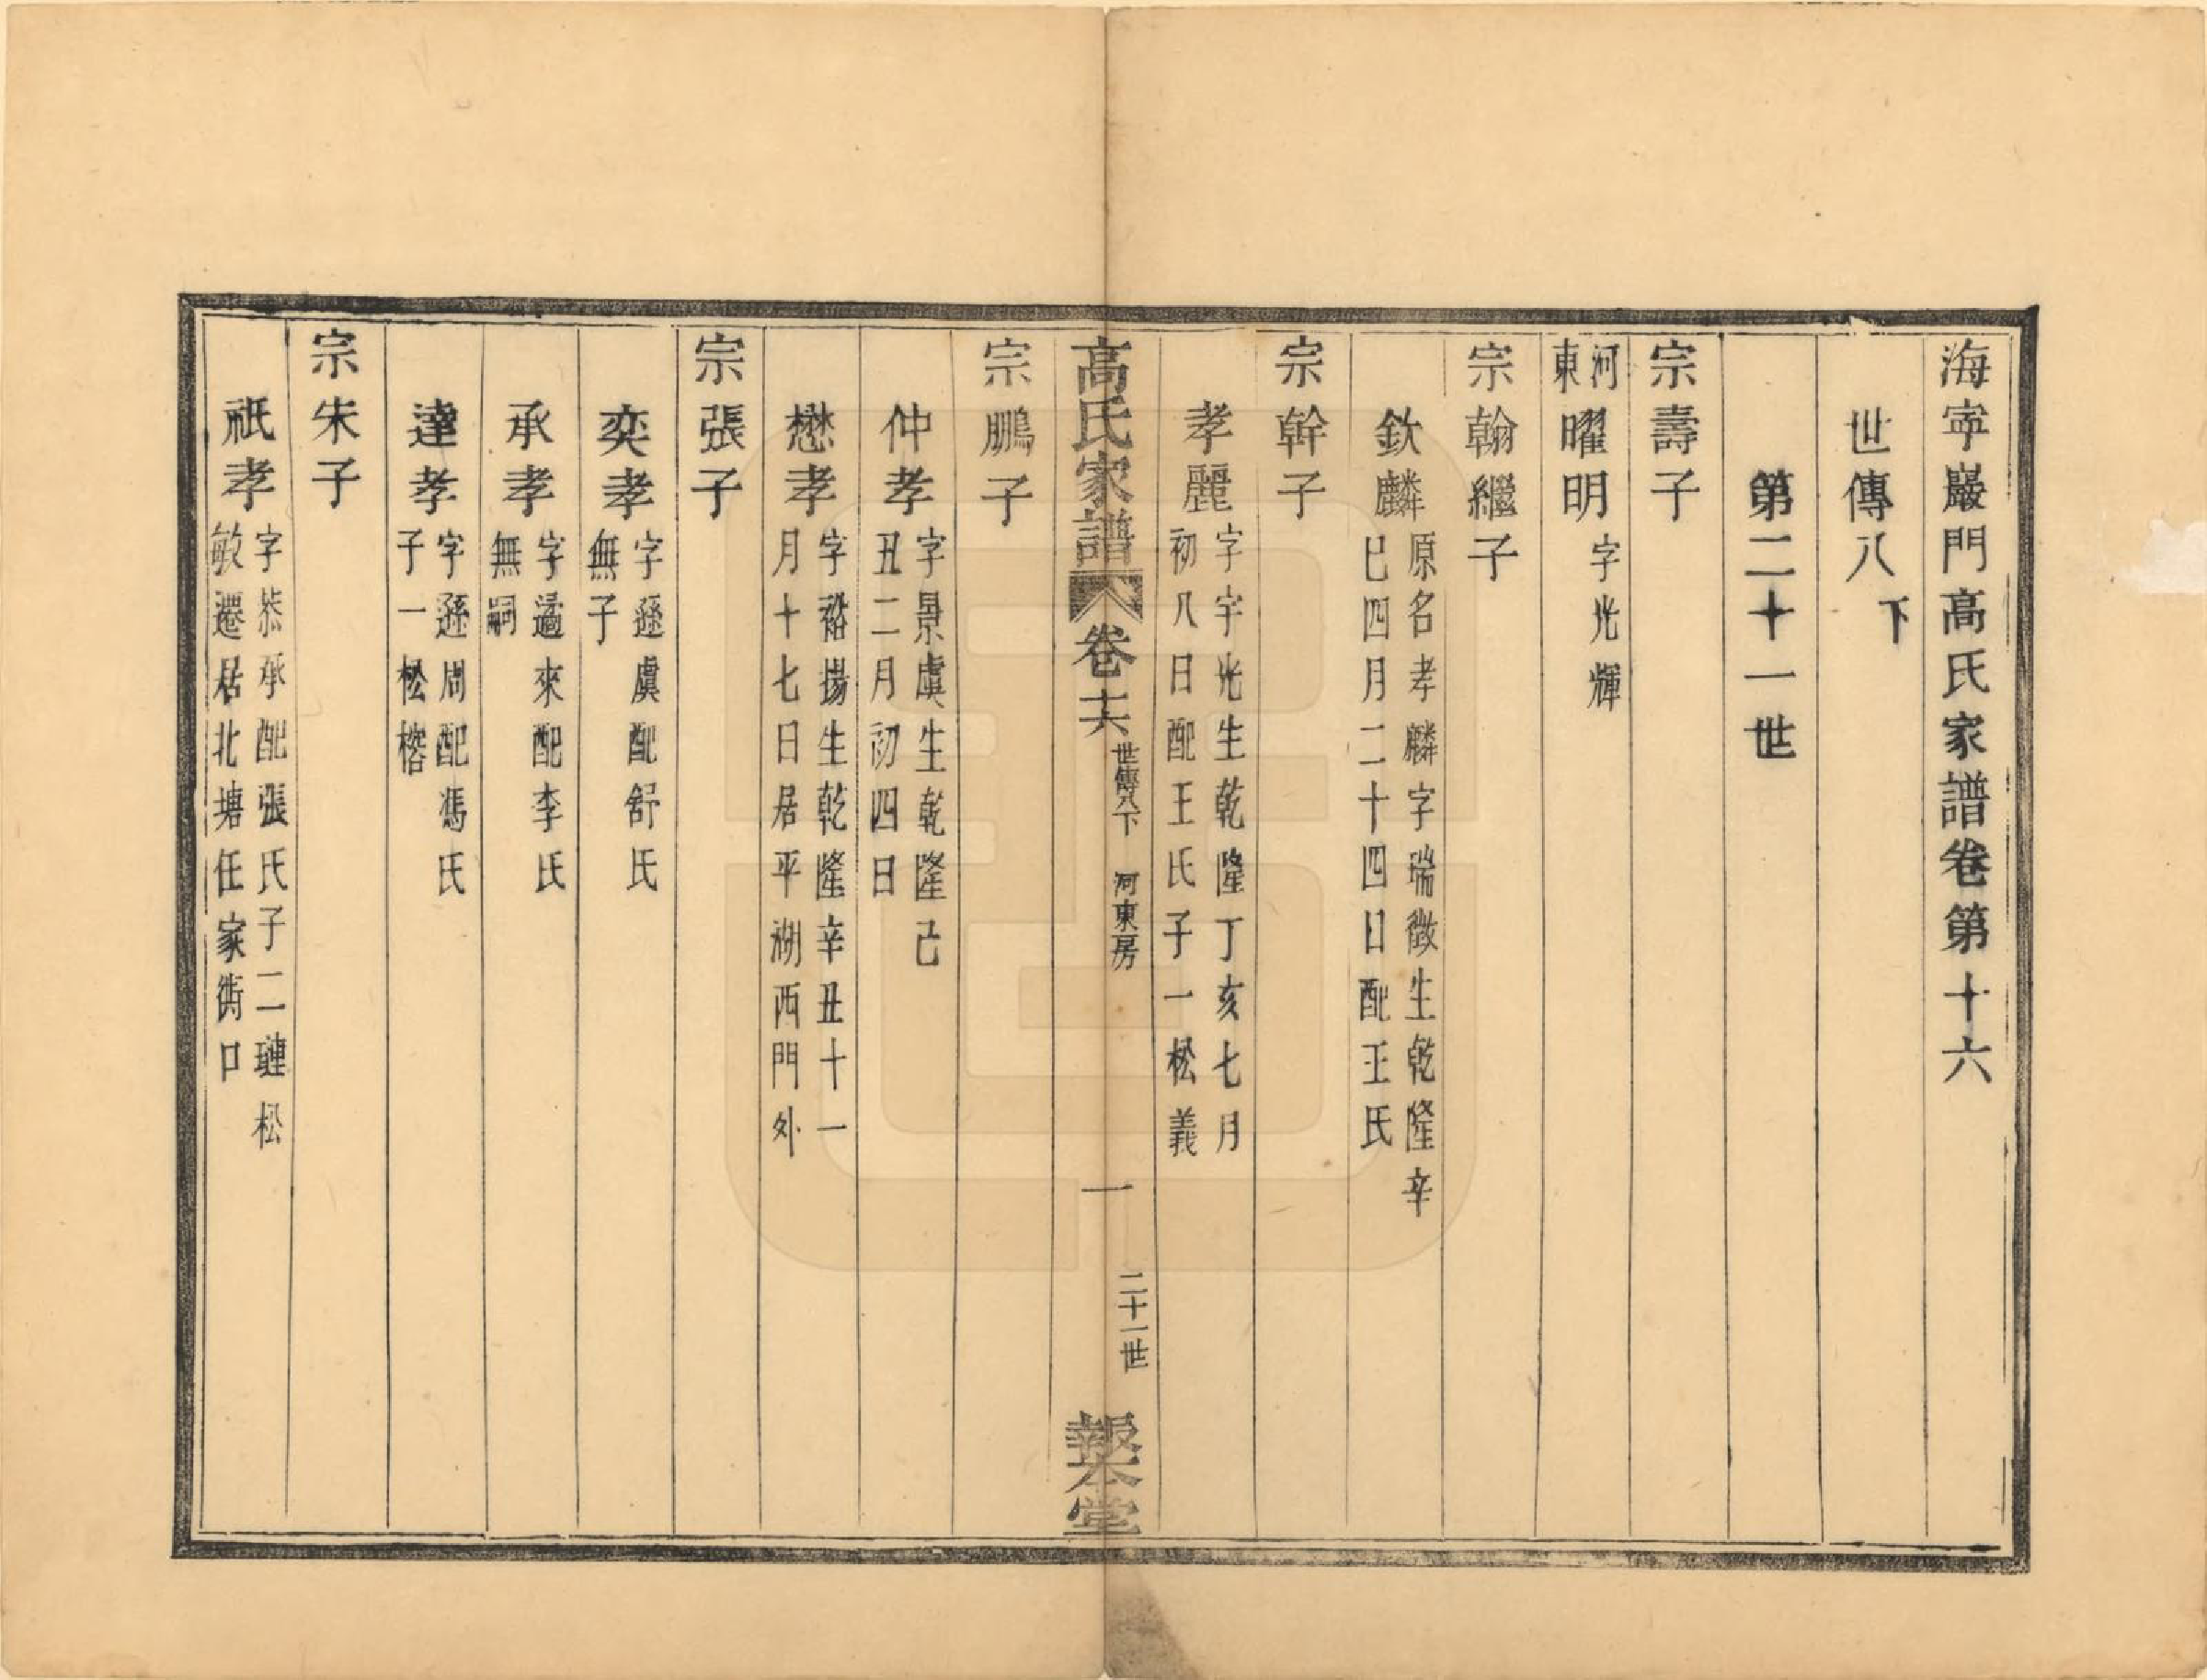 海寧巖門高氏家譜卷第十六
世傳八下
第二十一世
宗壽子
河東曜明字光輝
宗翰繼子
欽麟原名孝麟字瑞徵生乾隆辛
巳四月二十四日配王氏
宗幹子
孝麗字宇光生乾隆丁亥七月
初八日配王氏子一松義
高氏家譜 卷十六 世傳八下 河東房 一 二十一世 報本堂
宗鵬子
仲孝字景虞生乾隆己
丑二月初四日
懋孝字裕揚生乾隆辛丑十一
月十七日居平湖西門外
宗張子
奕孝字遜虞配舒氏
無子
承孝字遹來配李氏
無嗣
達孝字遜周配馮氏
子一松榕
宗朱子
祇孝字恭承配張氏子二璉松
敏遷居北塘任家衖口